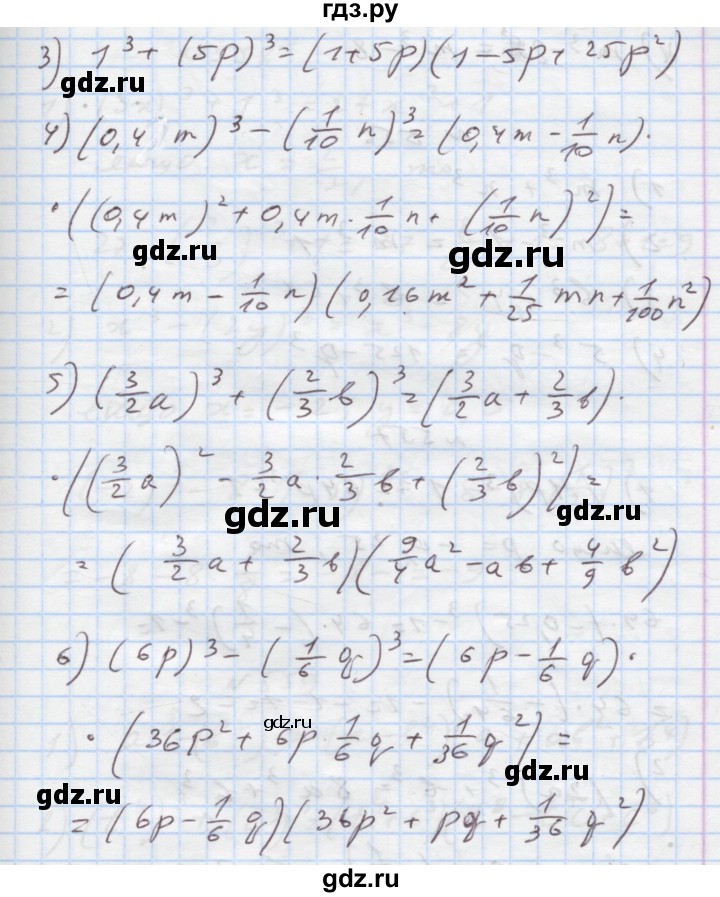 гдз.ру
3) 1³ + (5p)³ = (1+5p)(1-5p+25p²)
gdz.ru
4) (0,4 m)³ - (1/10 n)³ = (0,4m - 1/10 n)·
·((0,4m)² + 0,4m · 1/10 n + (1/10 n)²) =
gdz.ru gdz.ru
= (0,4m - 1/10 n)(0,16m² + 1/25 mn + 1/100 n²)
5) (3/2 a)³ + (2/3 b)³ = (3/2 a + 2/3 b)·
·((3/2 a)² - 3/2 a · 2/3 b + (2/3 b)²) =
gdz.ru gdz.ru
= (3/2 a + 2/3 b)(9/4 a² - ab + 4/9 b²)
6) (6p)³ - (1/6 q)³ = (6p - 1/6 q)·
gdz.ru
·(36p² + 6p · 1/6 q + 1/36 q²) =
gdz.ru gdz.ru
= (6p - 1/6 q)(36p² + pq + 1/36 q²)
gdz.ru